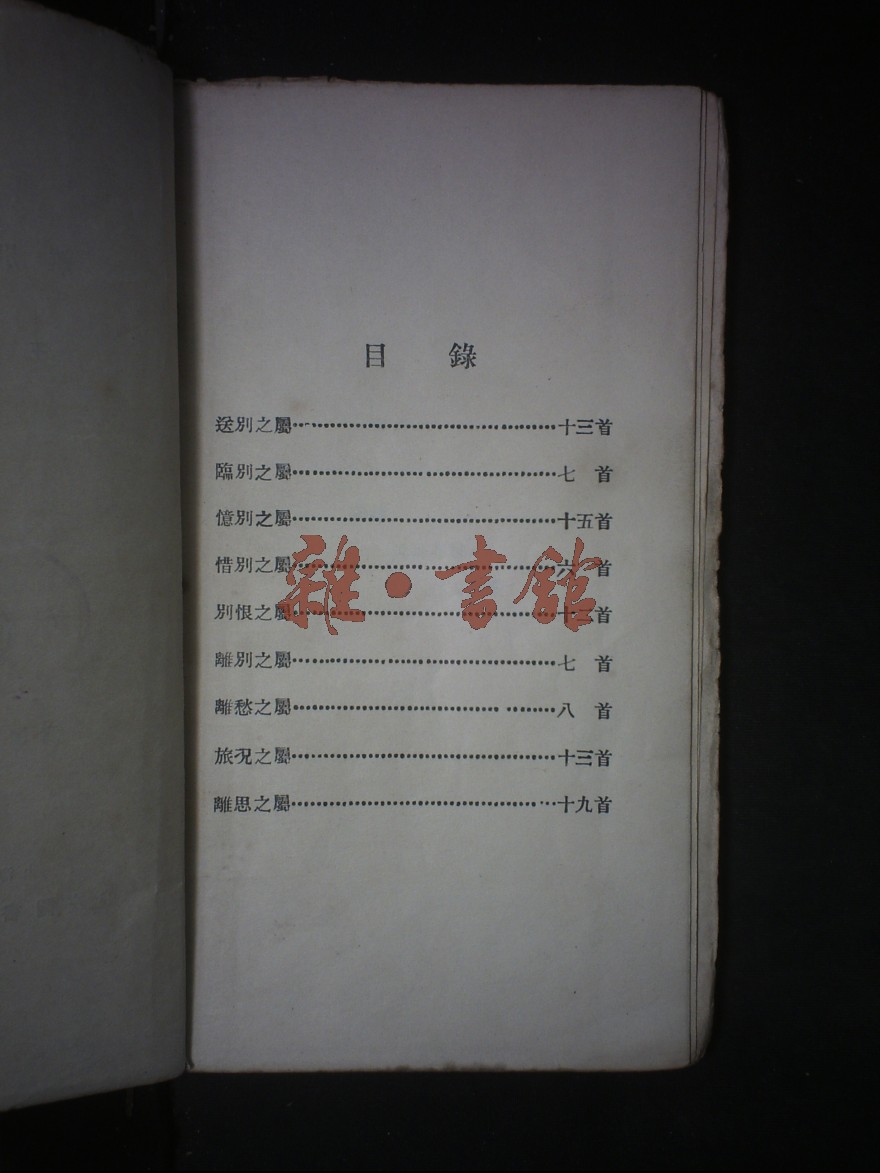 目 錄
送別之屬⋯⋯⋯⋯⋯⋯⋯⋯⋯⋯⋯⋯十三首
臨別之屬⋯⋯⋯⋯⋯⋯⋯⋯⋯⋯⋯⋯七 首
憶別之屬⋯⋯⋯⋯⋯⋯⋯⋯⋯⋯⋯⋯十五首
惜別之屬⋯⋯⋯⋯⋯⋯⋯⋯⋯⋯⋯⋯六 首
雜·書館
別恨之屬⋯⋯⋯⋯⋯⋯⋯⋯⋯⋯⋯⋯十三首
離別之屬⋯⋯⋯⋯⋯⋯⋯⋯⋯⋯⋯⋯七 首
離愁之屬⋯⋯⋯⋯⋯⋯⋯⋯⋯⋯⋯⋯八 首
旅況之屬⋯⋯⋯⋯⋯⋯⋯⋯⋯⋯⋯⋯十三首
離思之屬⋯⋯⋯⋯⋯⋯⋯⋯⋯⋯⋯⋯十九首